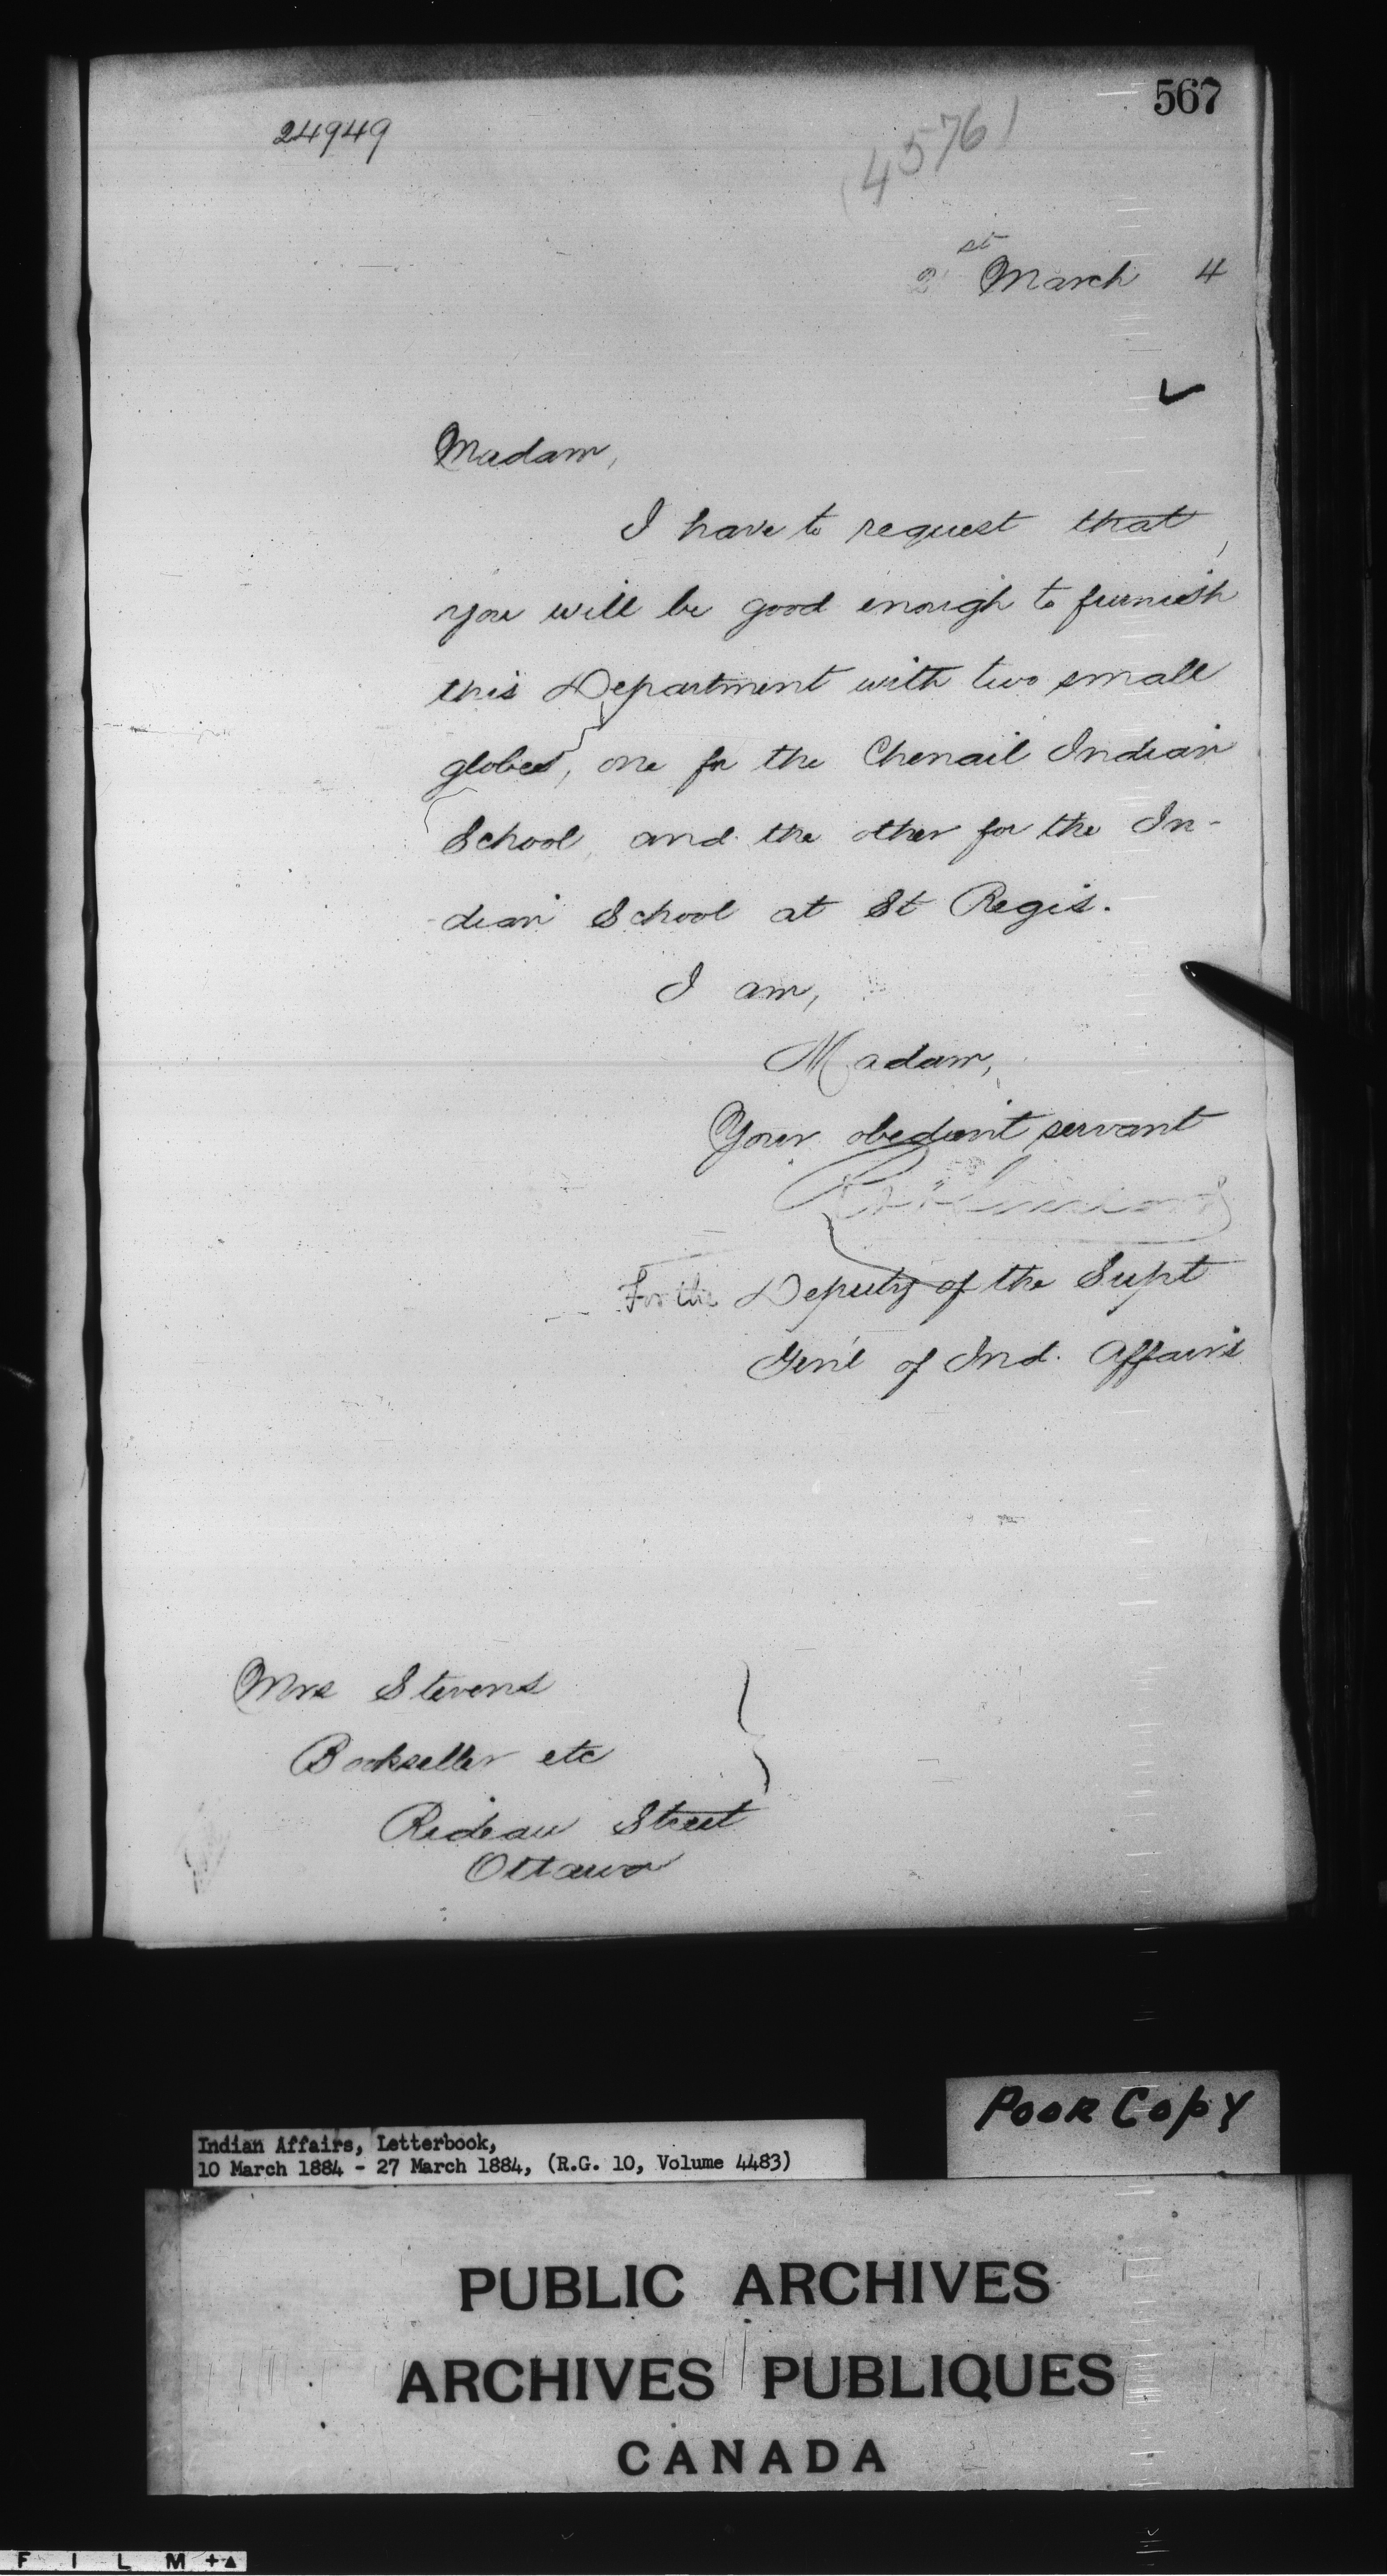 567
24949
(4576)
21st March 4
Madam,
I have to request that
you will be good enough to furnish
this Department with two small
globes, one for the Chenail Indian
School, and the other for the In-
dian School at St Regis.
I am,
Madam,
Your obedient servant
For the Deputy of the Supt
Gen'l of Ind. Affairs
Mrs Stevens
Bookseller etc
Rideau Street
Ottawa
Poor Copy
Indian Affairs, Letterbook,
10 March 1884 - 27 March 1884, (R.G. 10, Volume 4483)
PUBLIC ARCHIVES
ARCHIVES PUBLIQUES
CANADA
F I L M